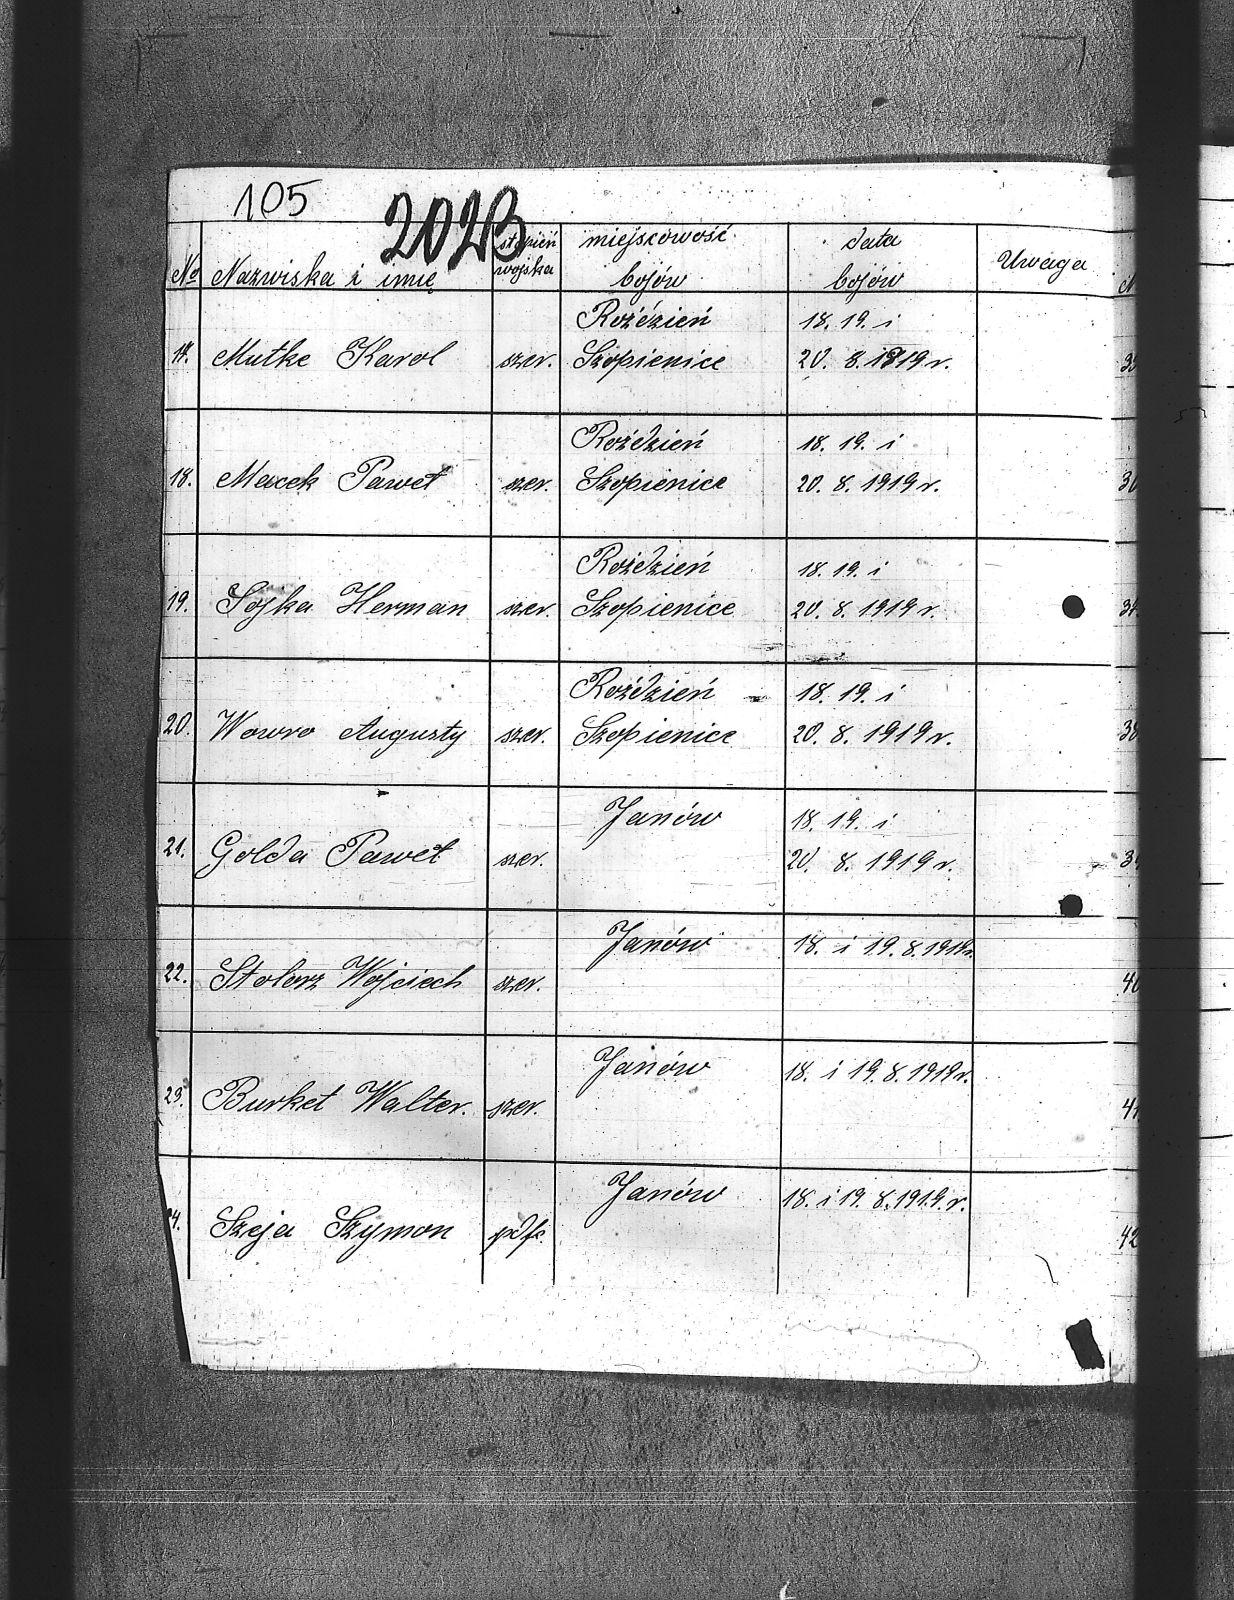 105
2023
№ Nazwiska i imię stopień wojska miejscowość bojów data bojów Uwaga
Roździeń 18. 19. i
17. Mutke Karol szer. Szopienice 20. 8. 1919 r.
Roździeń 18. 19. i
18. Macek Paweł szer. Szopienice 20. 8. 1919 r.
Roździeń 18. 19. i
19. Sojka Herman szer. Szopienice 20. 8. 1919 r.
Roździeń 18. 19. i
20. Wowro Augusty szer. Szopienice 20. 8. 1919 r.
Janów 18. 19. i
21. Golda Paweł szer. 20. 8. 1919 r.
Janów 18. i 19. 8. 1919 r.
22. Stolorz Wojciech szer.
Janów 18. i 19. 8. 1919 r.
23. Burket Walter. szer.
Janów 18. i 19. 8. 1919. r.
4. Szeja Szymon pdfr.
40
42